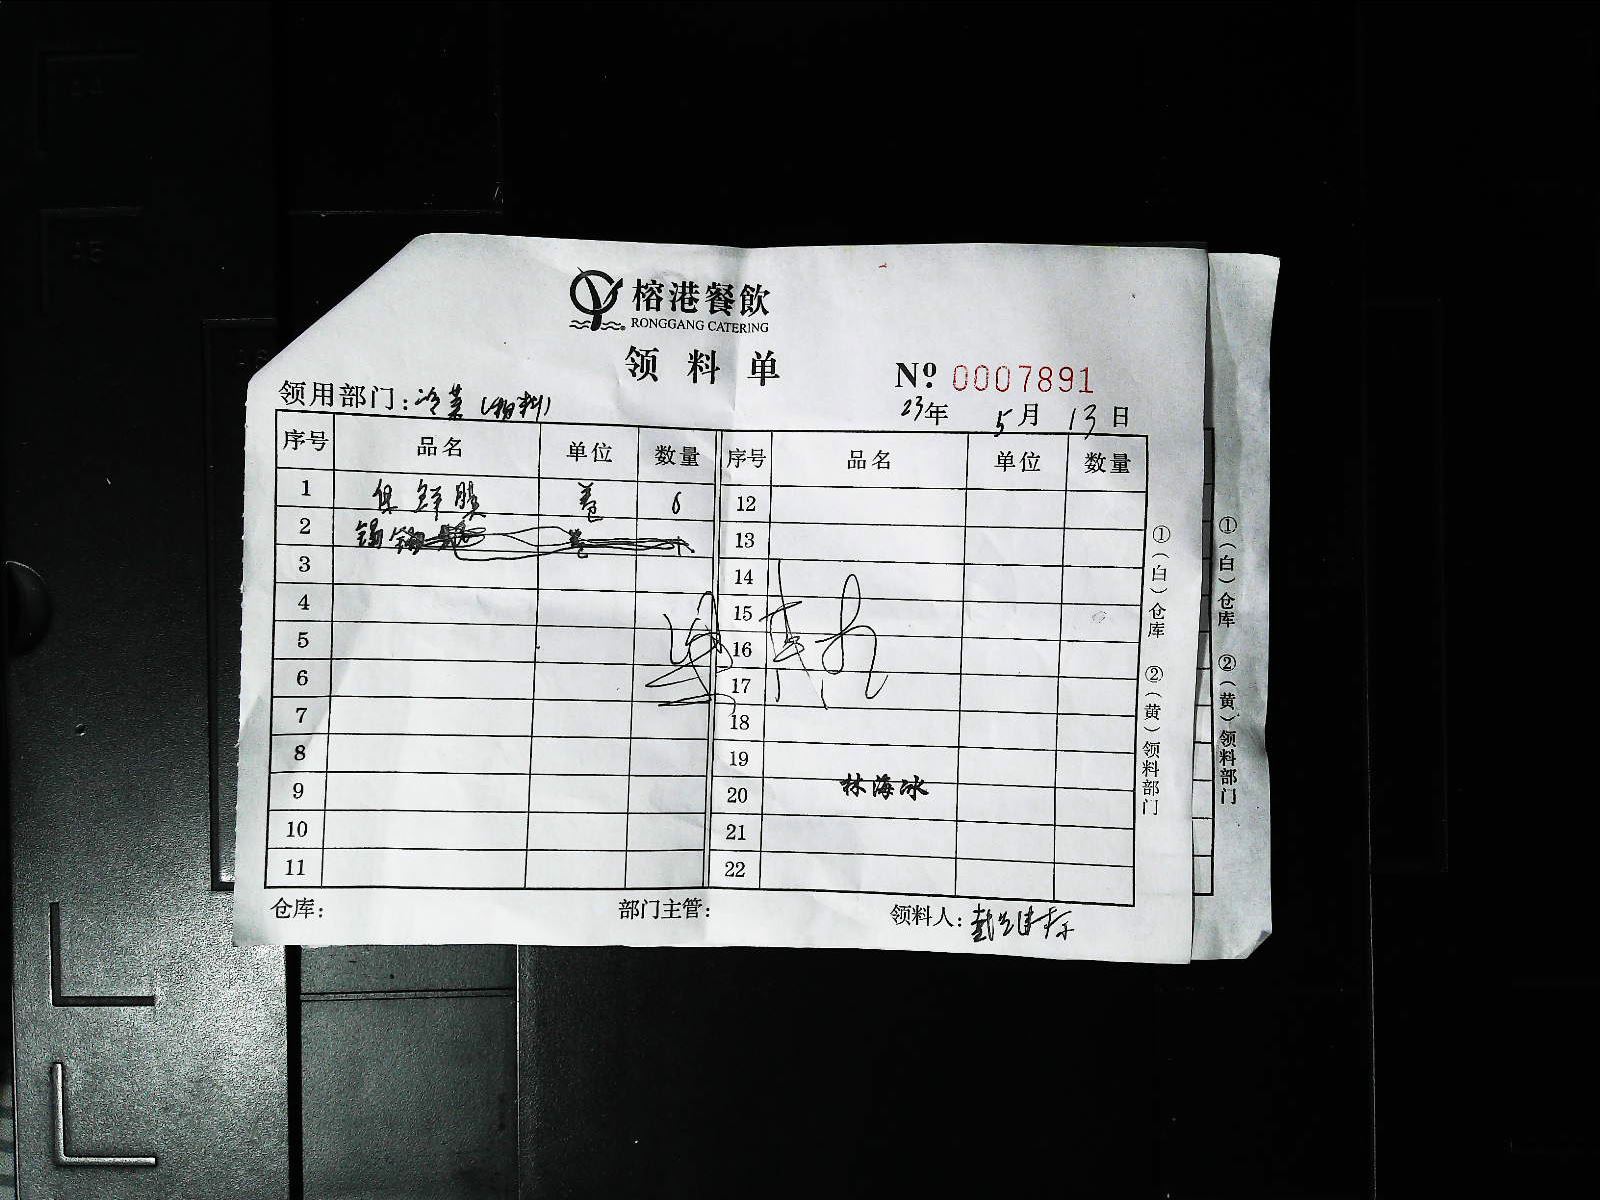 榕港餐飲
RONGGANG CATERING
领料单
№ 0007891
领用部门:冷菜(物料)
23年 5月 13日
序号 品名 单位 数量 序号 品名 单位 数量
1 保鲜膜 卷 6 12
2 锡 卷 13
3 14
4 15
5 16
6 17
7 18
8 19
9 20 林海冰
10 21
11 22
仓库: 部门主管: 领料人:
①(白)仓库 ②(黄)领料部门
①(白)仓库 ②(黄)领料部门